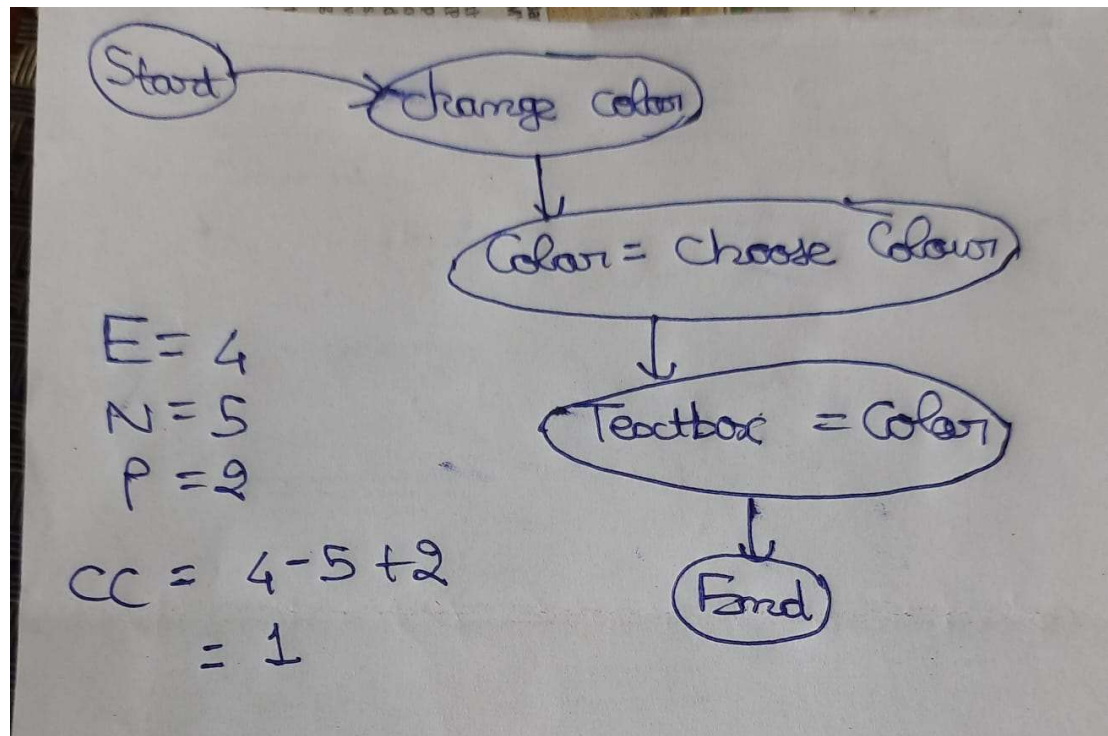 Start
change color
Color = Choose Colour
Textbox = Color
End
E = 4
N = 5
P = 2
CC = 4 - 5 + 2
= 1